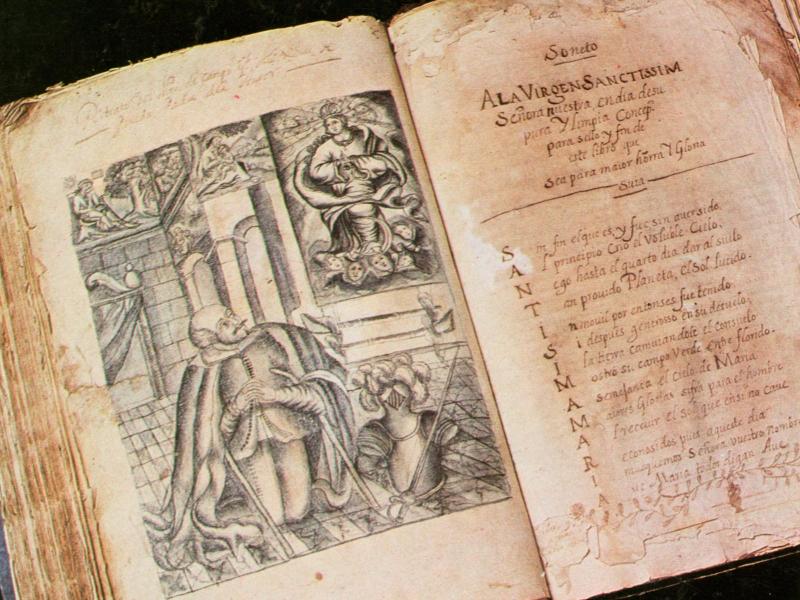 Retrato del
Soneto
A LA VIRGEN SANCTISSIM
Señora nuestra, en dia de su
pura y limpia Concep.
para sello y fin de
este libro que
Sea para maior honrra y Gloria
Suia
SANTISIMAMARIA
in fin el que es, y fue sin aver sido
l principio Crio el Voluble Cielo,
ego hasta el quarto dia dar al suelo
an prouido Planeta, el Sol lucido.
nmouil por entonses fue tenido
i despues generosso en su desuelo,
la tierra caminandole el consuelo
ostro su campo Verde entre florido.
semejansa el Cielo de Maria
Glorias para el hombre
el Sol que en si no caue
conosidos pues aqueste dia
Señora vuestro nombre
ue Maria todos digan Aue